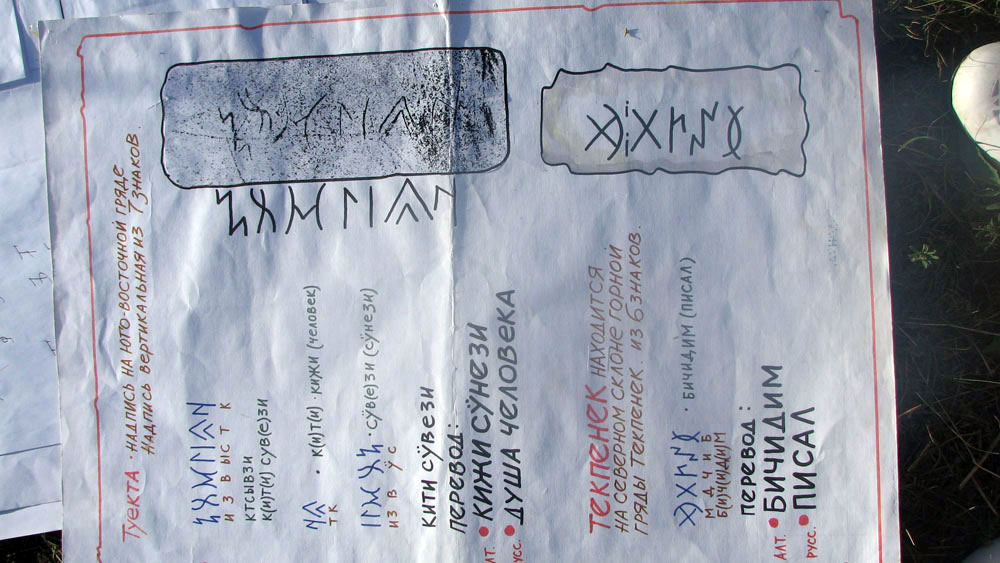 Туекта · надпись на юго-восточной гряде
надпись вертикальная из 7 знаков.
И З В ЫС Т К
КТСЫВЗИ
К(И)Т(И) СУВ(Е)ЗИ
· К(И)Т(И) · КИЖИ (ЧЕЛОВЕК)
ТК
· СӰВ(Е)ЗИ (СӰНЕЗИ)
ИЗ В ӰС
КИТИ СӰВЕЗИ
ПЕРЕВОД:
АЛТ. • КИЖИ СӰНЕЗИ
РУСС. • ДУША ЧЕЛОВЕКА
ТЕКПЕНЕК НАХОДИТСЯ
НА СЕВЕРНОМ СКЛОНЕ ГОРНОЙ
ГРЯДЫ ТЕКПЕНЕК. ИЗ 6 ЗНАКОВ.
· БИЧИДИМ (ПИСАЛ)
М Д Ч И Б
Б(И)Ч(И)Д(И)М
ПЕРЕВОД:
АЛТ. • БИЧИДИМ
РУСС. • ПИСАЛ